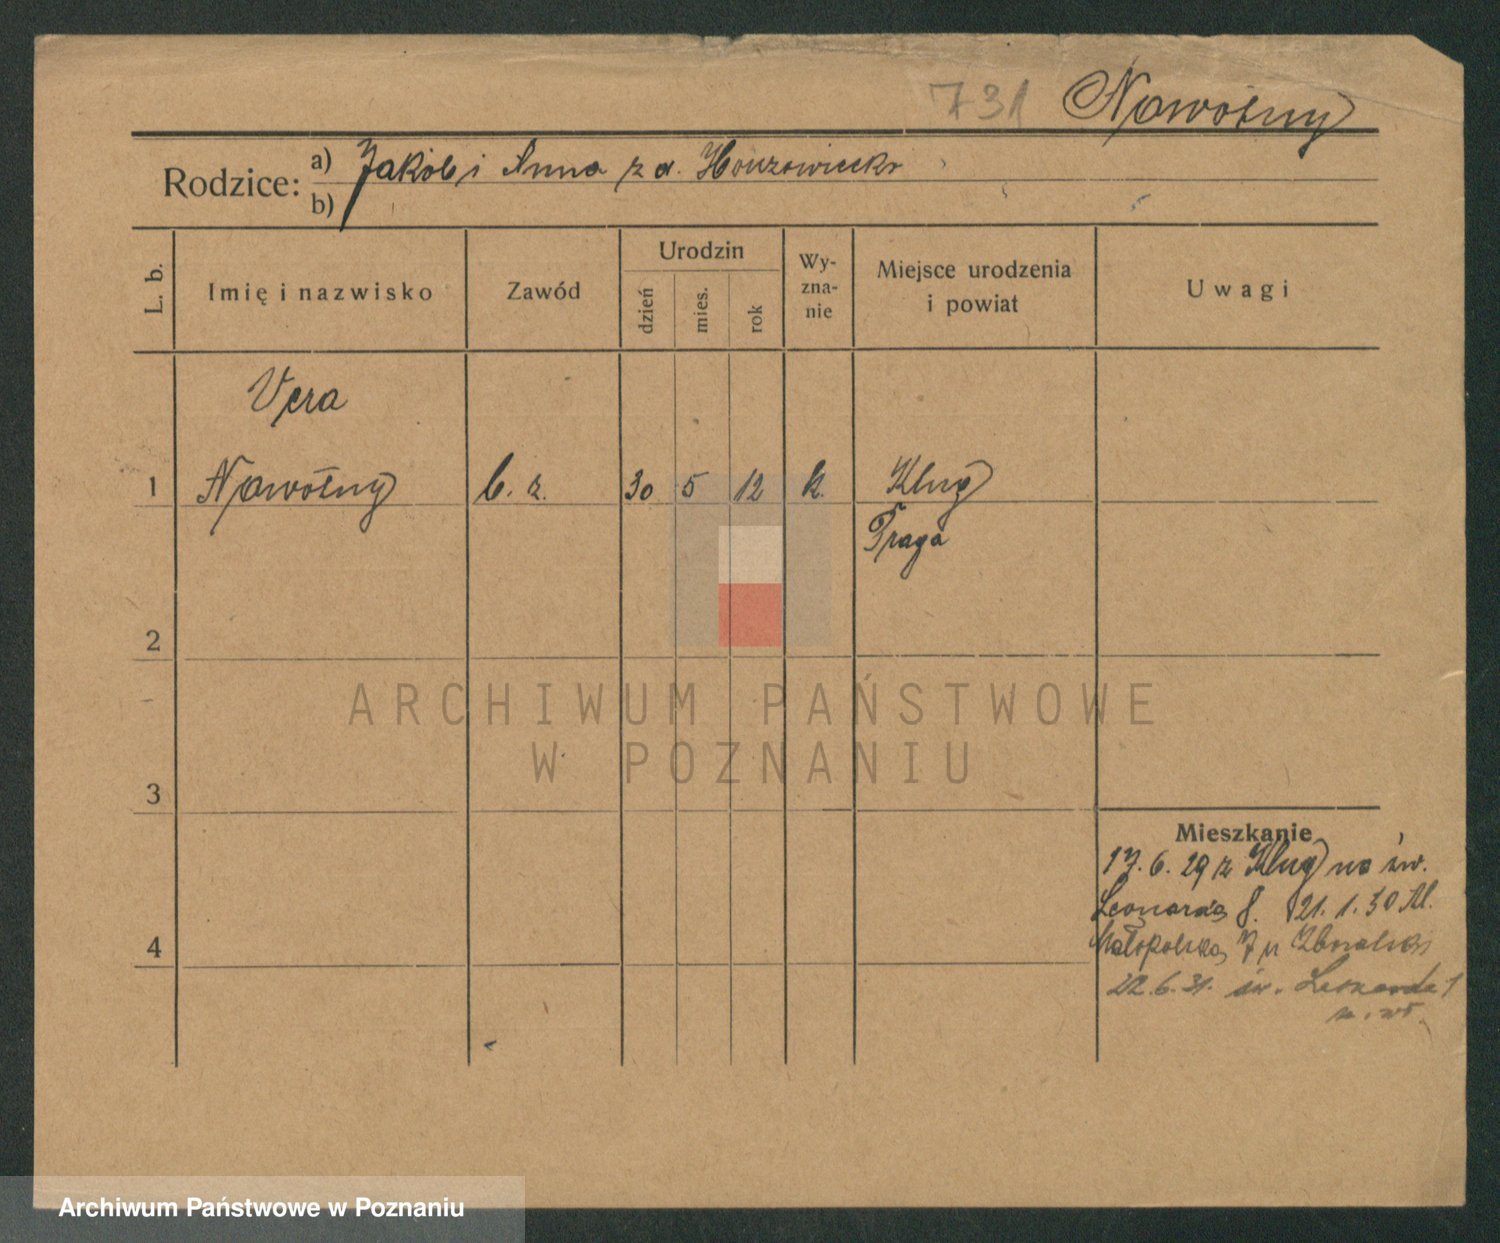 731 Nowotny
Rodzice: a) Jakób i Anna z d.
b)
L. b.
Imię i nazwisko
Zawód
Urodzin
dzień
mies.
rok
Wy-
zna-
nie
Miejsce urodzenia
i powiat
Uwagi
Vera
1 Nowotny b. z. 30 5 12 k. Klug
Praga
2
ARCHIWUM PAŃSTWOWE
W POZNANIU
3
Mieszkanie
17. 6. 29 z Klug na św.
Leonarda 8. 21. 1. 30 Al.
4 Małopolska 7
22. 6. 31. św. Leonarda 1
Archiwum Państwowe w Poznaniu